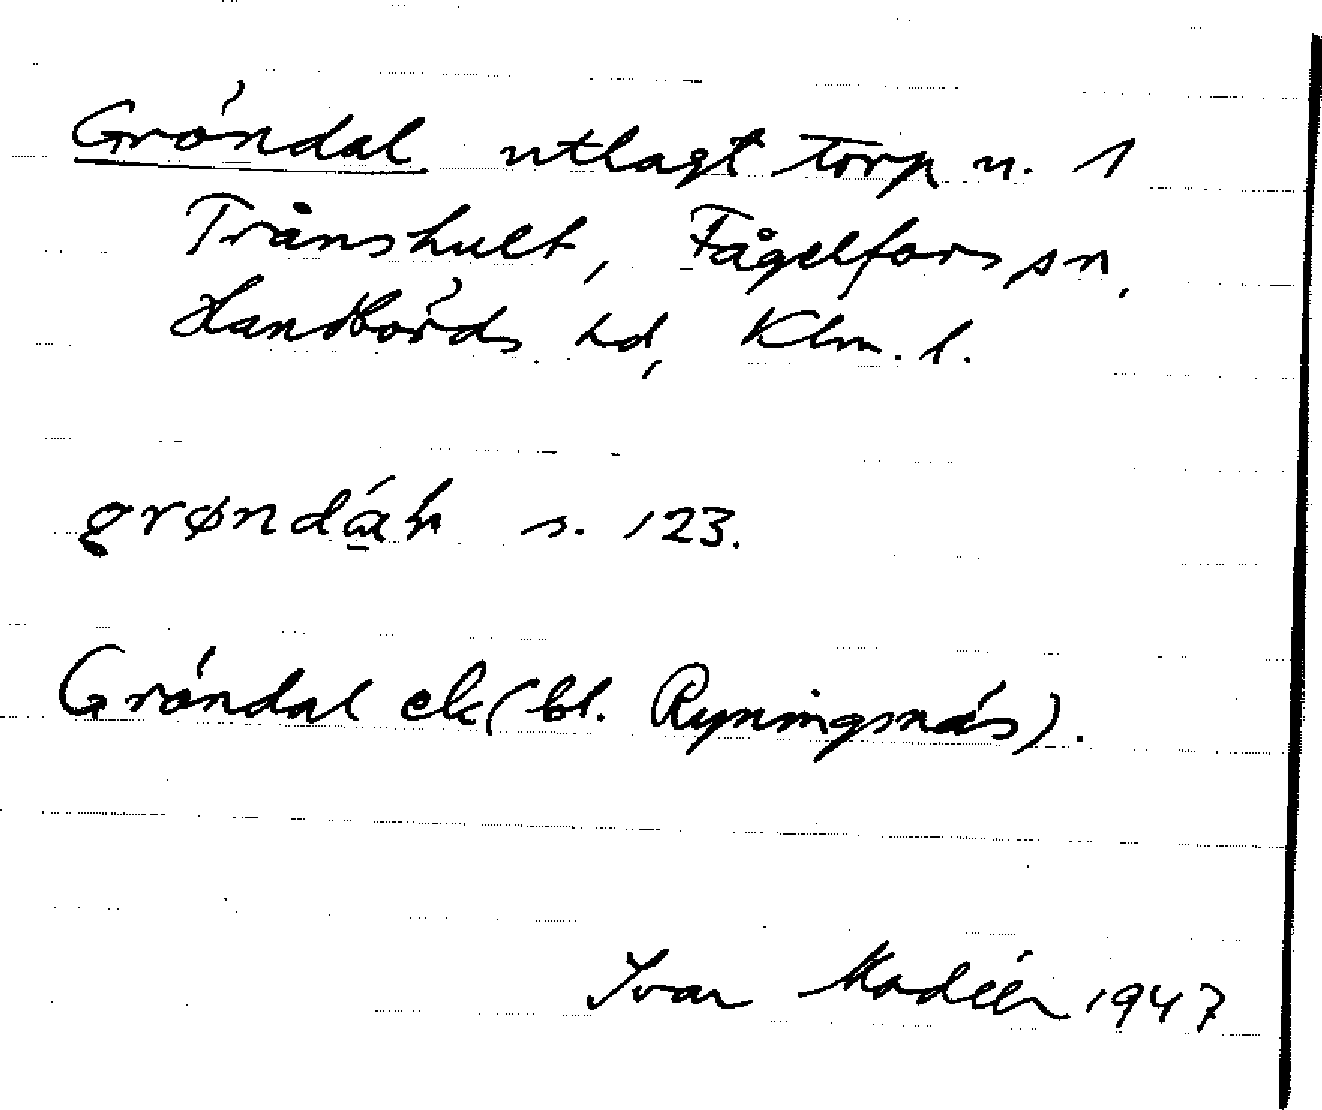 Gröndal utlagt torp u. 1
Trånshult, Fågelfors sn,
Handbörds hd, Klm. l.
s. 123.
Gröndal ek (bl. Ryningsnäs).
Ivar Modéer 1947